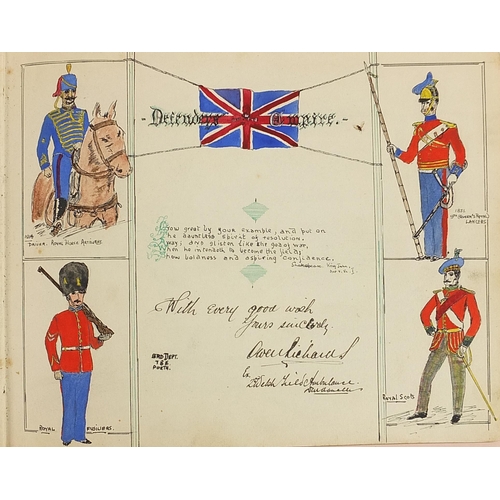 Defenders of the Empire.-
Grow great by your example, and put on
the dauntless spirit of resolution,
Away; and glisten like the god of war,
When he intendeth to become the field;
Show boldness and aspiring confidence.
Shakespeare King John
Act V. Sc. I
With every good wish
Yours sincerely.
Owen Richards
Welsh Field Ambulance
Driver, Royal Field Artillery.
1832
9th Queen's Royal
Lancers
Royal Fusiliers.
Royal Scots